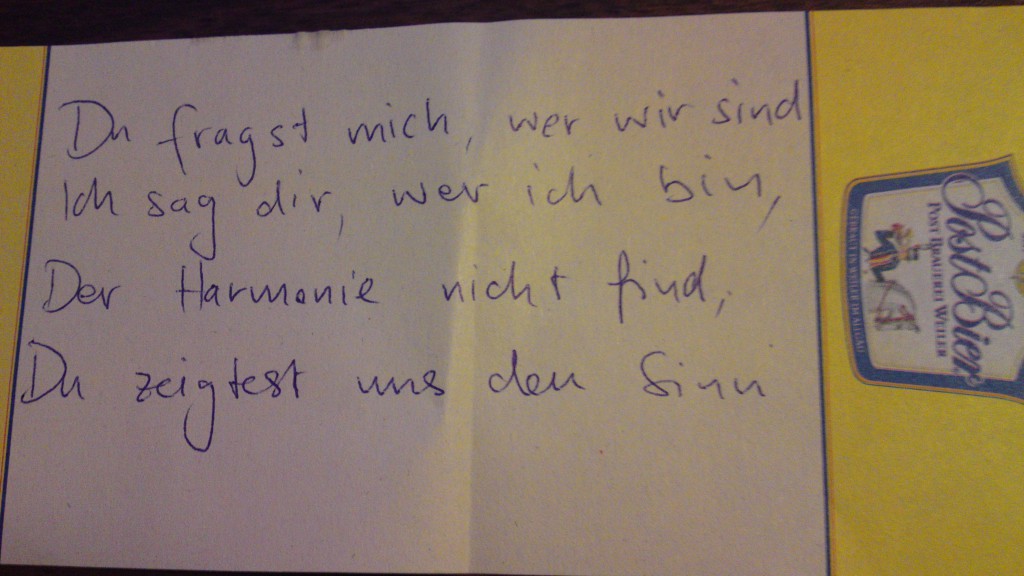 Du fragst mich, wer wir sind
Ich sag dir, wer ich bin,
Der Harmonie nicht find,
Du zeigtest uns den Sinn
PostBier
POST BRAUEREI WEILER